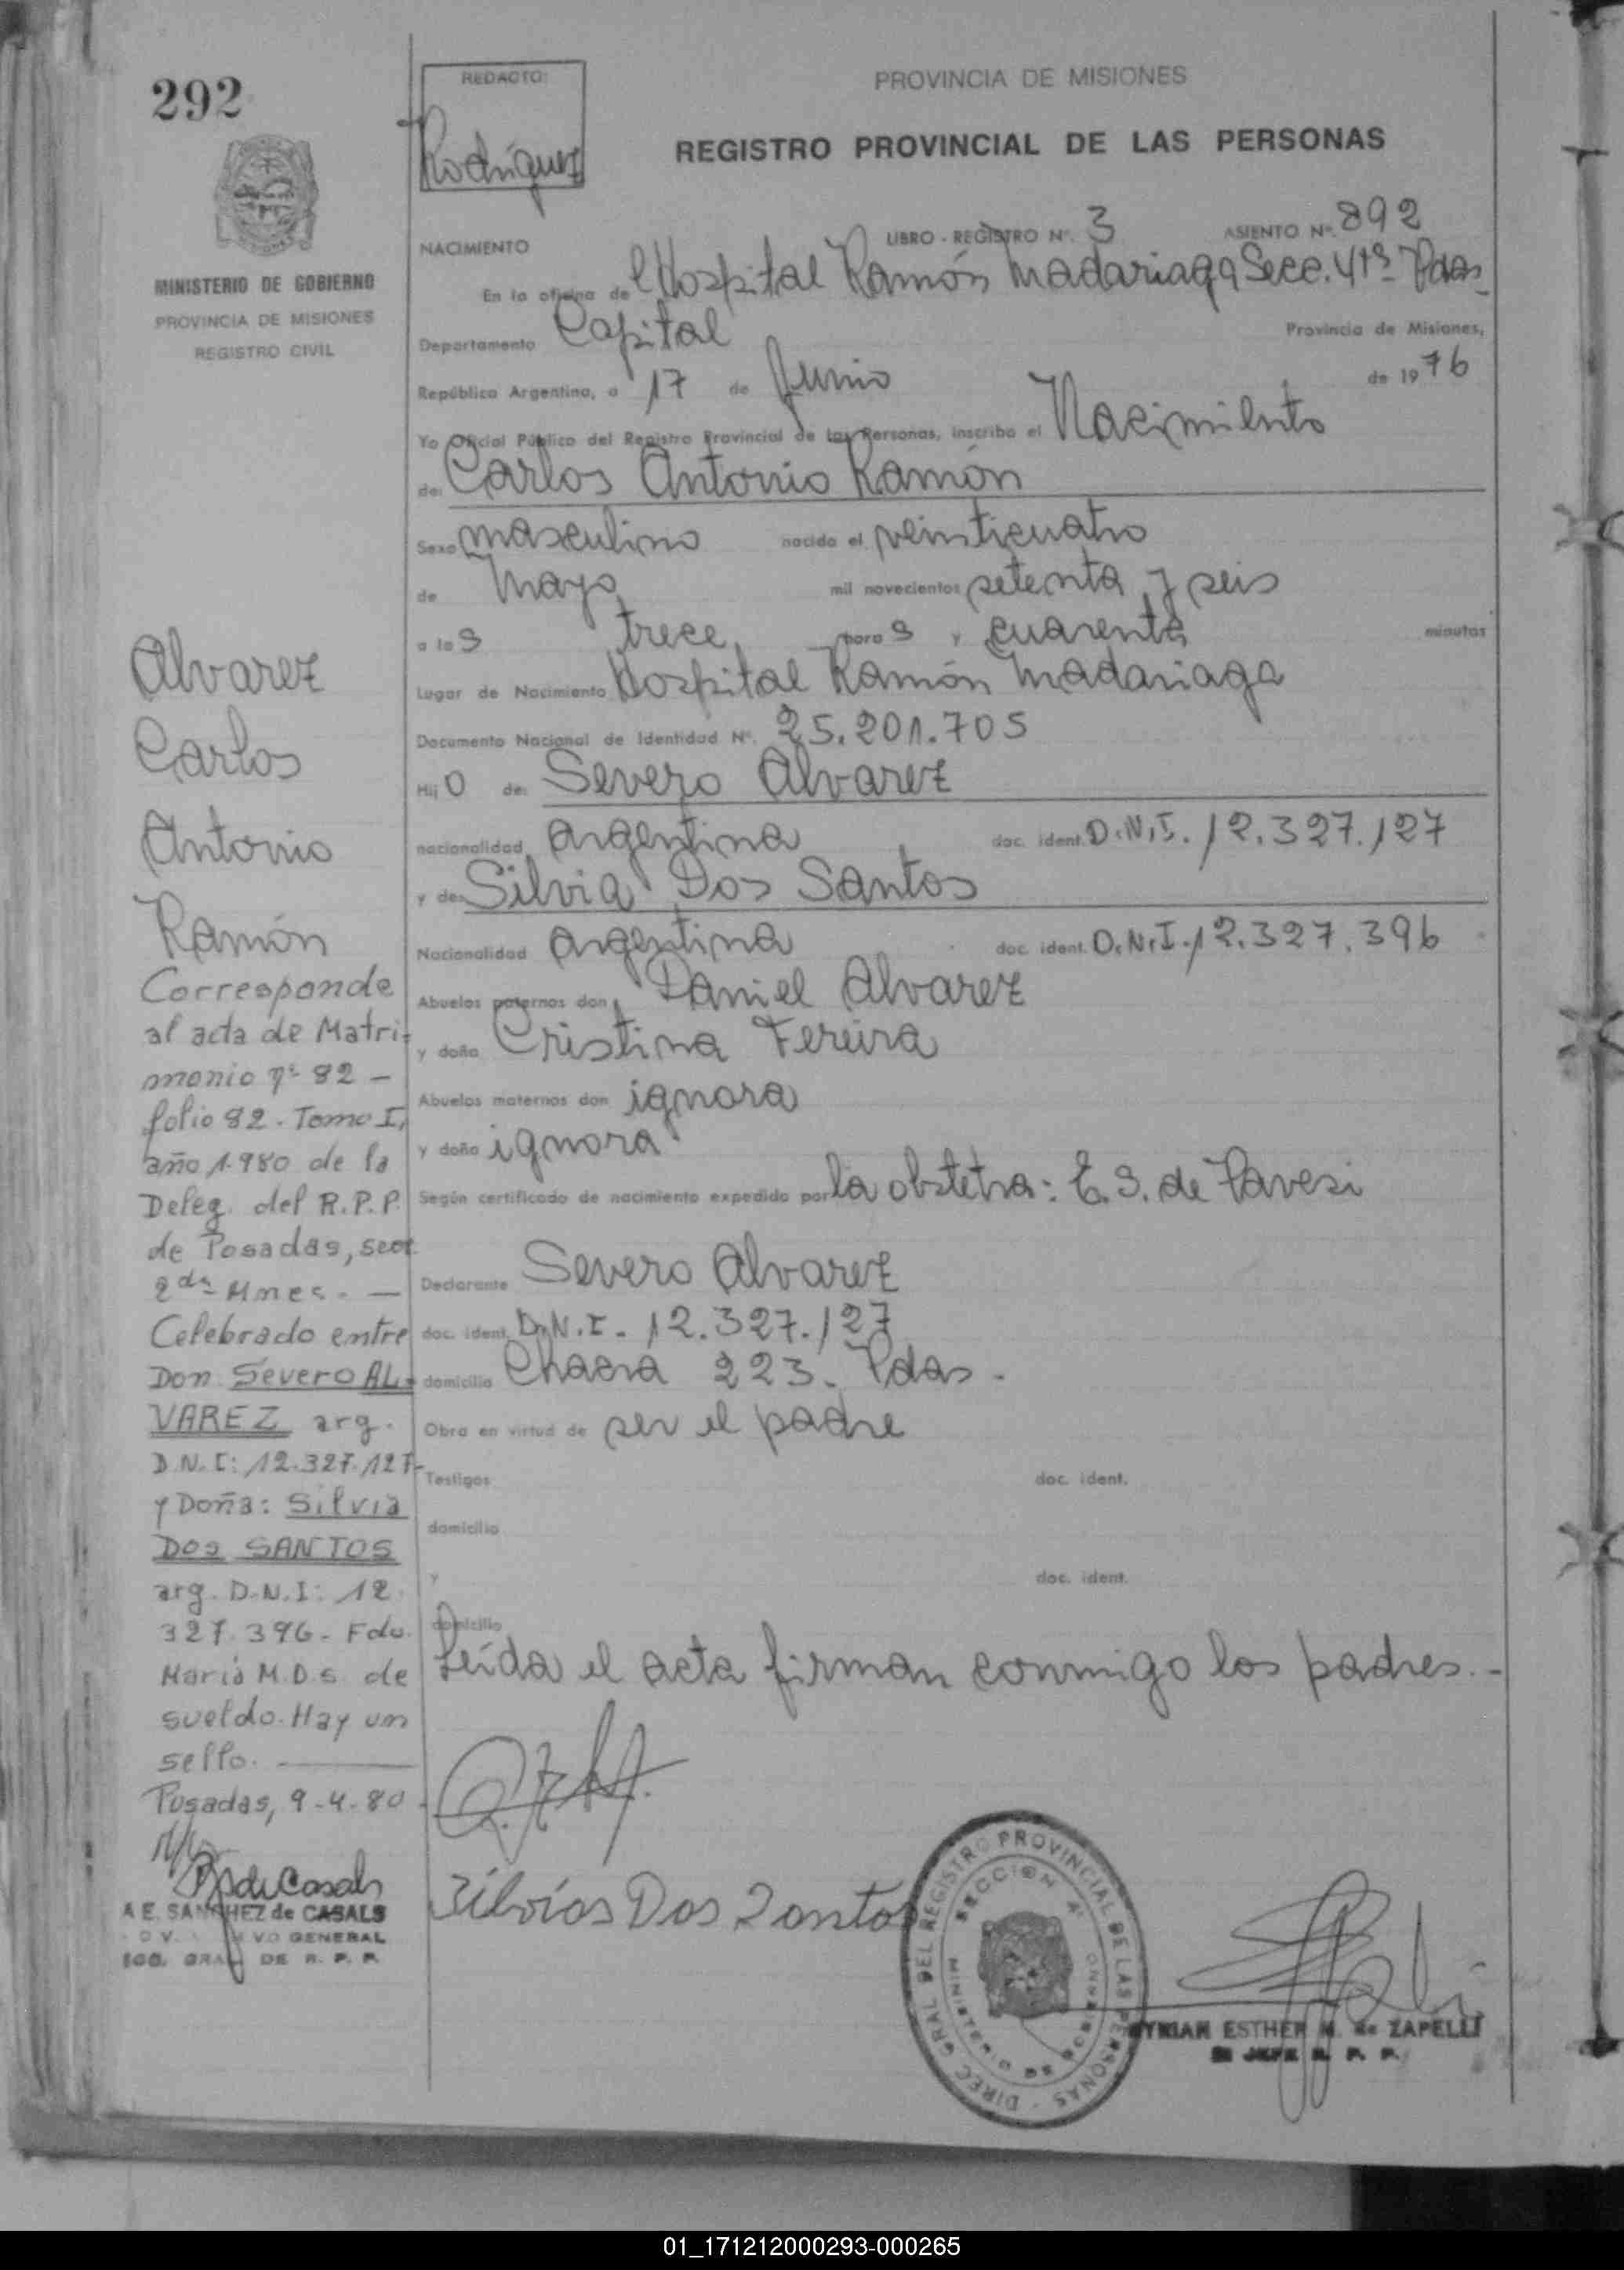 292
REDACTO:
Rodríguez
PROVINCIA DE MISIONES
REGISTRO PROVINCIAL DE LAS PERSONAS
MINISTERIO DE GOBIERNO
PROVINCIA DE MISIONES
REGISTRO CIVIL
NACIMIENTO
LIBRO - REGISTRO Nº. 3 ASIENTO Nº. 892
En la oficina del Hospital Ramón Madariaga Secc. 4ta Pdas
Departamento Capital Provincia de Misiones,
República Argentina, a 17 de Junio de 1976
Yo Oficial Público del Registro Provincial de las Personas, inscribo el Nacimiento
de: Carlos Antonio Ramón
Sexo masculino nacido el veinticuatro
de Mayo mil novecientos setenta y seis
a las trece horas y cuarenta minutos
Lugar de Nacimiento Hospital Ramón Madariaga
Documento Nacional de Identidad Nº. 25.201.705
Hijo de: Severo Alvarez
nacionalidad argentina doc. ident. D.N.I. 12.327.127
y de: Silvia Dos Santos
Nacionalidad argentina doc. ident. D.N.I. 12.327.396
Abuelos paternos don Daniel Alvarez
y doña Cristina Fereira
Abuelos maternos don ignora
y doña ignora
Según certificado de nacimiento expedido por la obstetra: E. S. de Pavesi
Declarante Severo Alvarez
doc. ident. D.N.I. 12.327.127
domicilio Chacra 223. Pdas.
Obra en virtud de ser el padre
Testigos doc. ident.
domicilio
y doc. ident.
domicilio
Leída el acta firman conmigo los padres.-
Silvias Dos Santos
Alvarez
Carlos
Antonio
Ramón
Corresponde
al acta de Matri-
monio nº 82 -
folio 82. Tomo I,
año 1.980 de la
Deleg. del R.P.P.
de Posadas, secc.
2da Mnes. -
Celebrado entre
Don Severo AL-
VAREZ arg.
D.N.I: 12.327.127-
y Doña: Silvia
DOS SANTOS
arg. D.N.I: 12.
327.396- Fdo.
María M.D.S. de
sueldo. Hay un
sello.
Posadas, 9-4-80
A E. SANCHEZ de CASALS
VO GENERAL
GRAL DE R. P. P.
DIREC. GRAL DEL REGISTRO PROVINCIAL DE LAS PERSONAS
SECCION 4ª
MINISTERIO DE GOBIERNO
MYRIAN ESTHER M. de ZAPELLI
JEFE R. P. P.
01_171212000293-000265